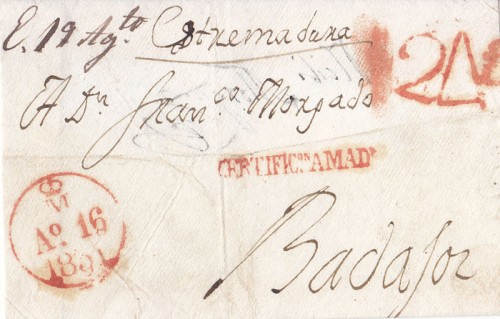 E. 19 Agto Estremadura
A Dn Franco Morgado
12A
CERTIFICon AMADd
Ao 16
1851
Badajoz